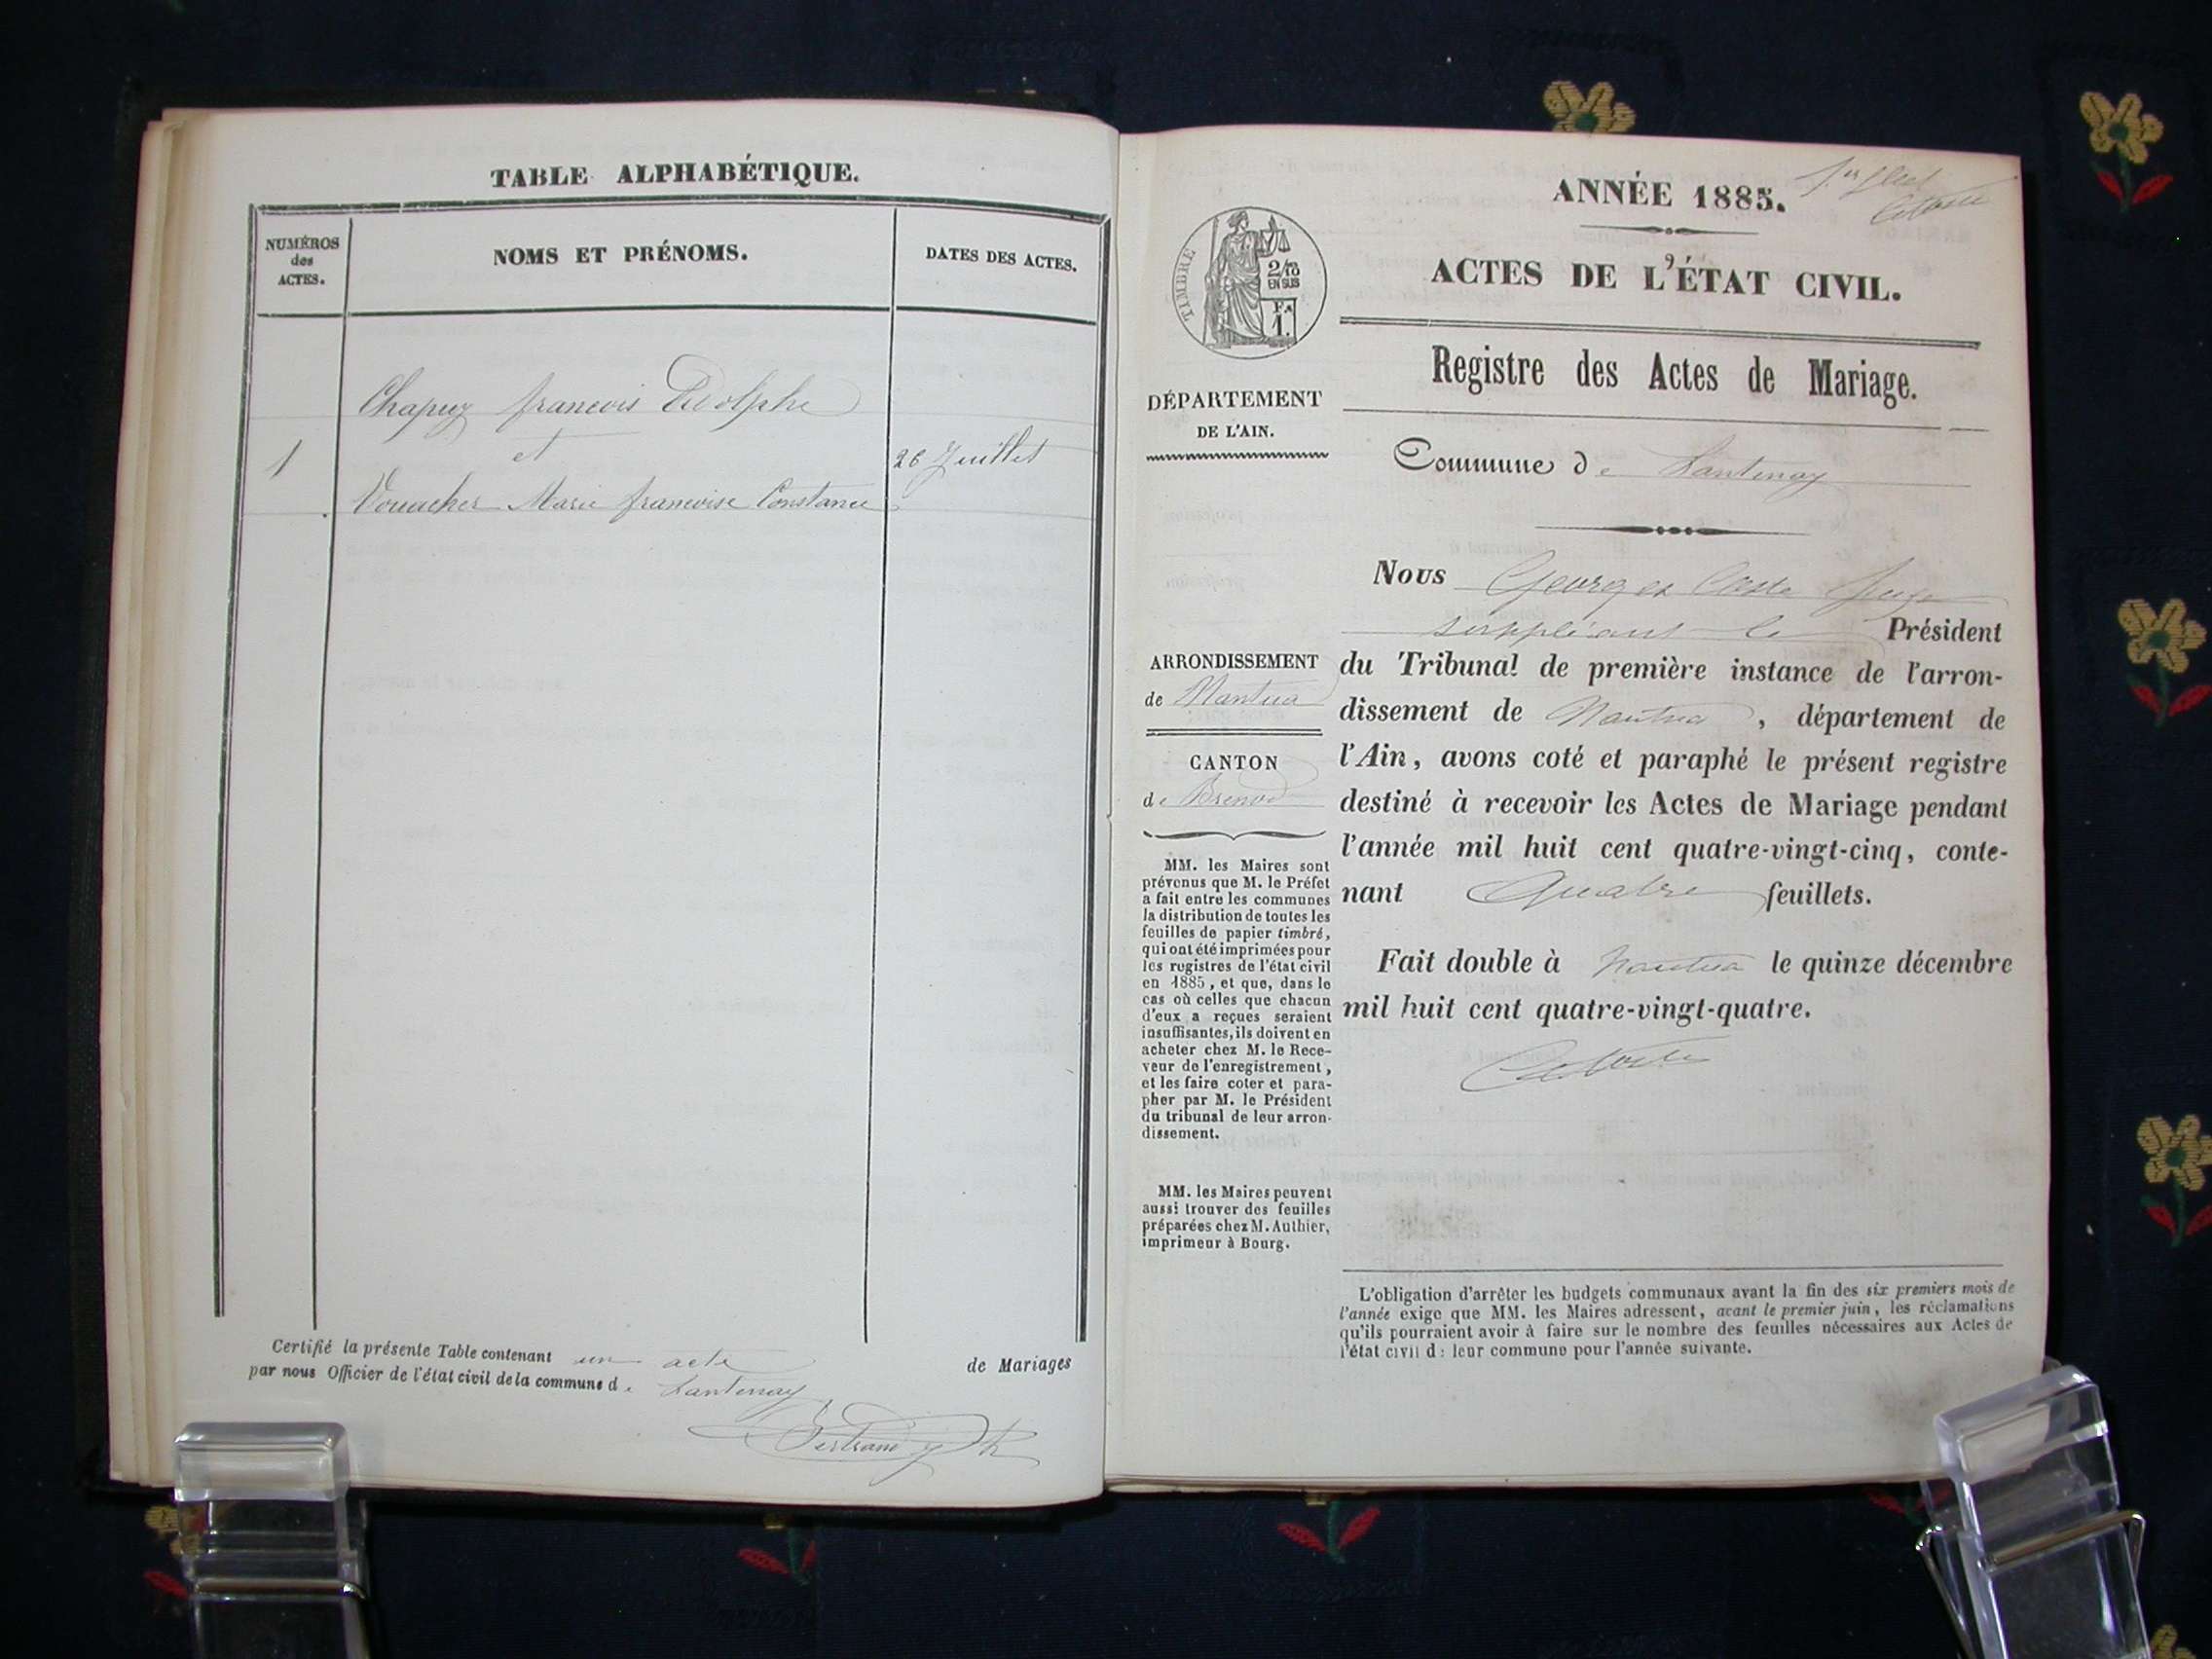 TABLE ALPHABÉTIQUE.
NUMÉROS
des
ACTES.
NOMS ET PRÉNOMS.
DATES DES ACTES.
Chapuy francois Adolphe
1
et
26 Juillet
Vouacher Marie francoise Constance
Certifié la présente Table contenant un acte de Mariages
par nous Officier de l'état civil de la commune de Lantenay
Bertrand
1er flet
CCoste
ANNÉE 1885.
ACTES DE L'ÉTAT CIVIL.
Registre des Actes de Mariage.
TIMBRE
2/10
EN SUS
Fc
1.
DÉPARTEMENT
DE L'AIN.
Commune de Lantenay
Nous Georges Coste Juge
suppléant le Président
du Tribunal de première instance de l'arron-
dissement de Nantua, département de
l'Ain, avons coté et paraphé le présent registre
destiné à recevoir les Actes de Mariage pendant
l'année mil huit cent quatre-vingt-cinq, conte-
nant Quatre feuillets.
Fait double à Nantua le quinze décembre
mil huit cent quatre-vingt-quatre.
CCoste
ARRONDISSEMENT
de Nantua
CANTON
de Brenod
MM. les Maires sont
prévenus que M. le Préfet
a fait entre les communes
la distribution de toutes les
feuilles de papier timbré,
qui ont été imprimées pour
les registres de l'état civil
en 1885, et que, dans le
cas où celles que chacun
d'eux a reçues seraient
insuffisantes, ils doivent en
acheter chez M. le Rece-
veur de l'enregistrement,
et les faire coter et para-
pher par M. le Président
du tribunal de leur arron-
dissement.
MM. les Maires peuvent
aussi trouver des feuilles
préparées chez M. Authier,
imprimeur à Bourg.
L'obligation d'arrêter les budgets communaux avant la fin des six premiers mois de
l'année exige que MM. les Maires adressent, avant le premier juin, les réclamations
qu'ils pourraient avoir à faire sur le nombre des feuilles nécessaires aux Actes de
l'état civil d: leur commune pour l'année suivante.